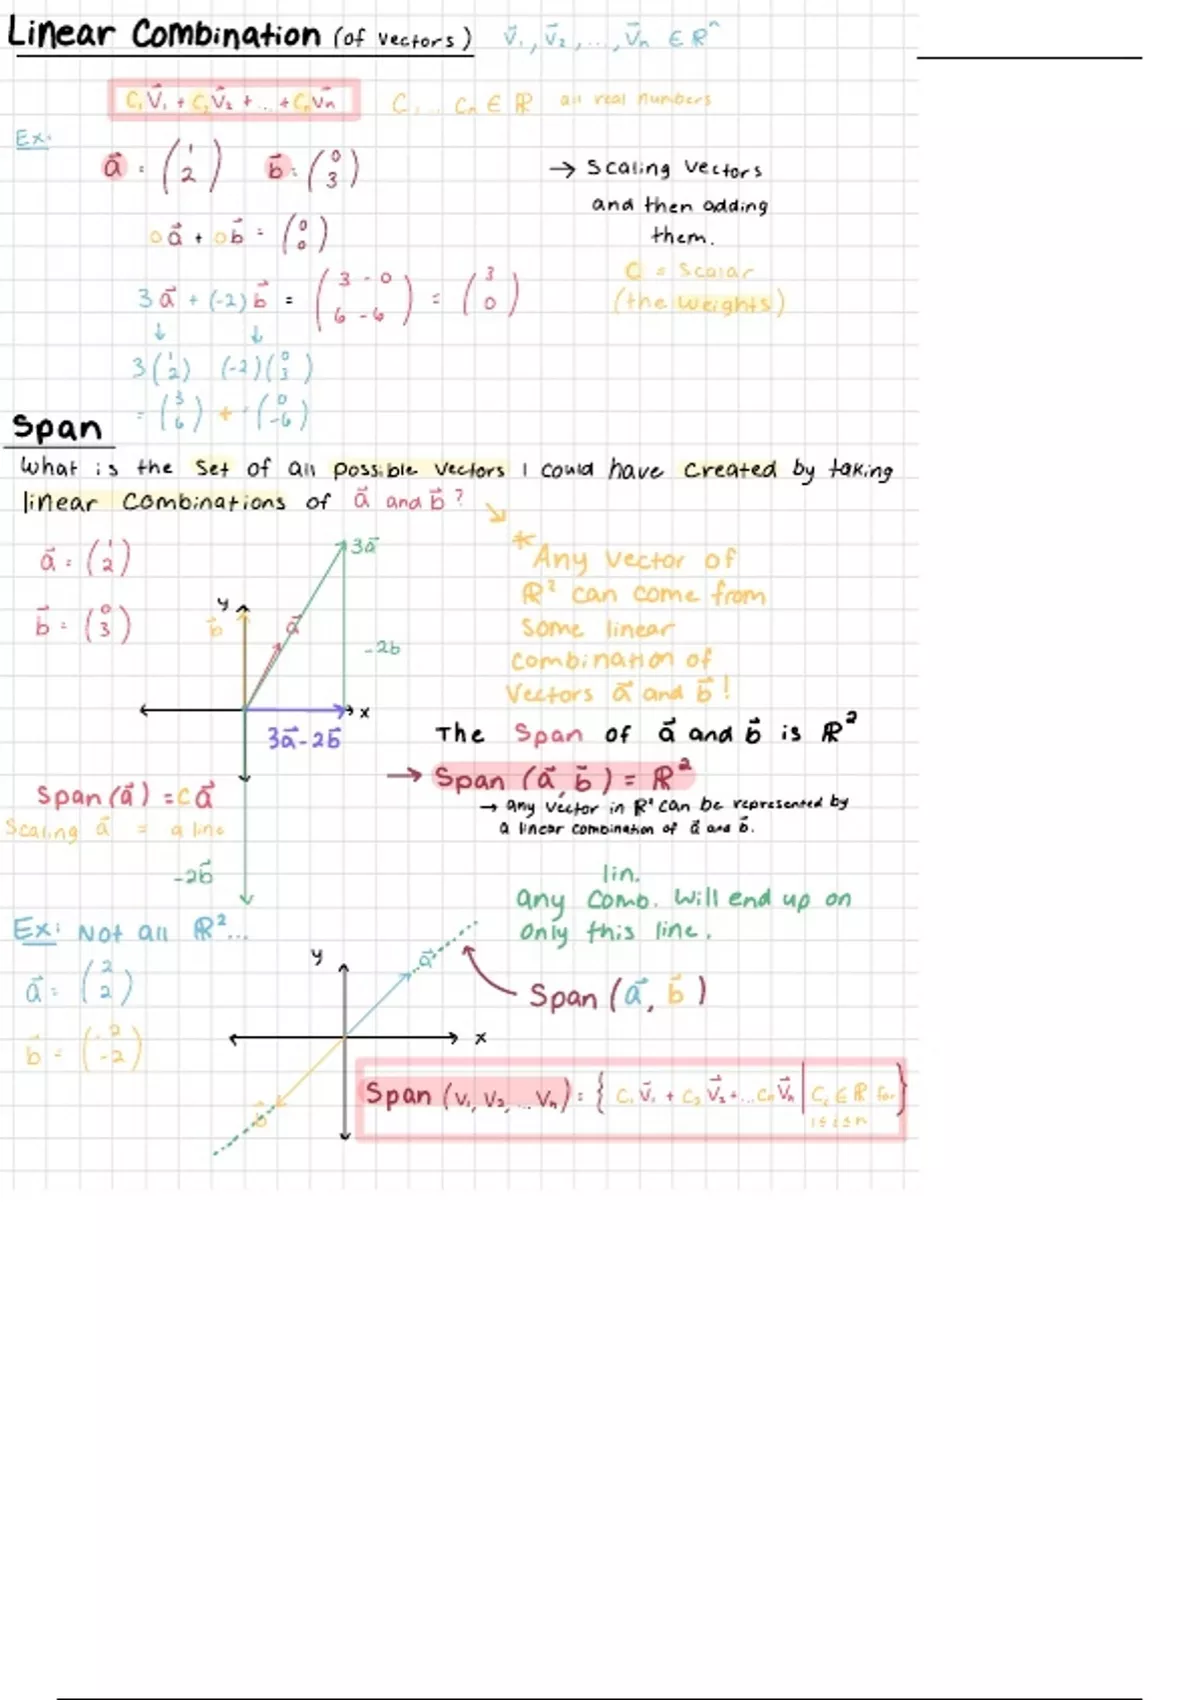 Linear Combination (of vectors) v⃗₁, v⃗₂, ..., v⃗n ∈ ℝⁿ
C₁v⃗₁ + C₂v⃗₂ + ... + Cnv⃗n C₁ ... Cn ∈ ℝ all real numbers
Ex:
a⃗ = (1 2) b⃗ = (0 3)
→ Scaling vectors
and then adding
them.
0a⃗ + 0b⃗ = (0 0)
C = Scalar
(the weights)
3a⃗ + (-2)b⃗ = (3 - 0 6 - 6) = (3 0)
↓ ↓
3(1 2) (-2)(0 3)
= (3 6) + (0 -6)
Span
What is the set of all possible vectors I could have created by taking
linear combinations of a⃗ and b⃗?
a⃗ = (1 2)
b⃗ = (0 3)
3a⃗
y
b⃗
a⃗
-2b
x
3a⃗-2b⃗
*Any vector of
ℝ² can come from
some linear
combination of
vectors a⃗ and b⃗!
The Span of a⃗ and b⃗ is ℝ²
→ Span (a⃗, b⃗) = ℝ²
→ any vector in ℝ² can be represented by
a linear combination of a⃗ and b⃗.
Span(a⃗) = Ca⃗
Scaling a⃗ = a line
-2b⃗
lin.
any comb. will end up on
only this line.
Ex: Not all ℝ²...
a⃗ = (2 2)
b⃗ = (-2 -2)
y
a⃗
x
b⃗
Span (a⃗, b⃗)
Span (v₁, v₂, ... vn) = { C₁v⃗₁ + C₂v⃗₂ + ... Cnv⃗n | Cᵢ ∈ ℝ for
1 ≤ i ≤ n }